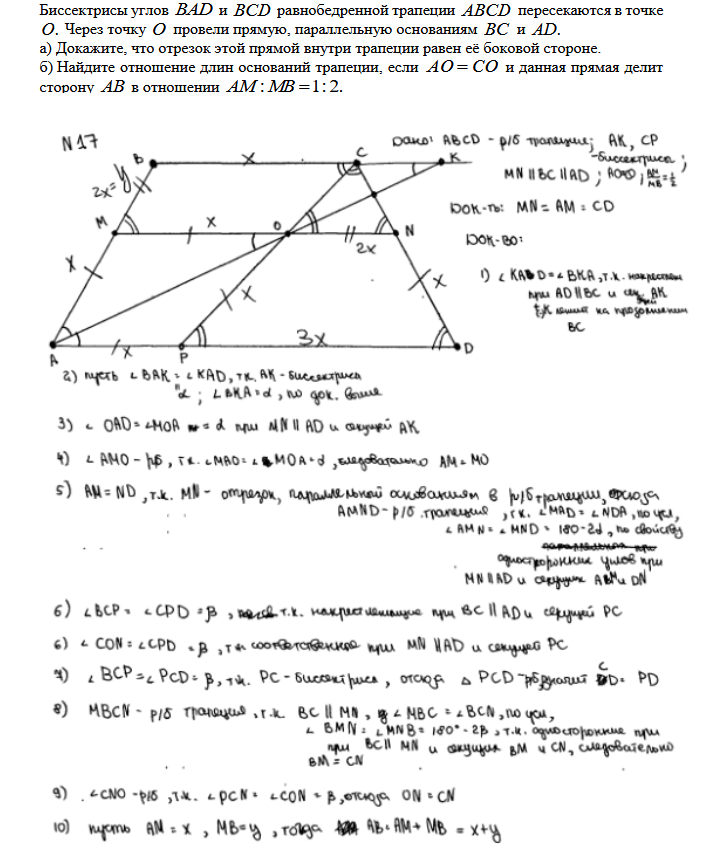 Биссектрисы углов BAD и BCD равнобедренной трапеции ABCD пересекаются в точке
O. Через точку O провели прямую, параллельную основаниям BC и AD.
а) Докажите, что отрезок этой прямой внутри трапеции равен её боковой стороне.
б) Найдите отношение длин оснований трапеции, если AO = CO и данная прямая делит
сторону AB в отношении AM : MB = 1 : 2.
N17
Дано: ABCD - р/б трапеция; AK, CP
-биссектриса;
MN || BC || AD; AO=CO; AM/MB = 1/2
Док-ть: MN = AM = CD
Док-во:
B
x
C
K
2x=y
M
x
O
N
2x
x
x
x
A
x
P
3x
D
1) ∠KAD = ∠BKA, т.к. накрест леж
при AD || BC и сек. AK
т.K лежит на продолжении
BC
2) пусть ∠BAK = ∠KAD, т.к. AK - биссектриса
"α; ∠BKA = α, по док. выше
3) ∠OAD = ∠MOA = α при MN || AD и секущей AK
4) ∠AMO - р/б, т.к. ∠MAO = ∠MOA = α, следовательно AM = MO
5) AM = ND, т.к. MN - отрезок, параллельной основаниям в р/б трапеции, отсюда
AMND - р/б трапеция, т.к. ∠MAD = ∠NDA, по усл,
∠AMN = ∠MND = 180-2α, по свойству
односторонних углов при
MN || AD и секущих AM и DN
6) ∠BCP = ∠CPD = β, т.к. накрестлежащие при BC || AD и секущей PC
6) ∠CON = ∠CPD = β, т.к соответственное при MN || AD и секущей PC
7) ∠BCP = ∠PCD = β, т.к. PC - биссектриса, отсюда △PCD - р/б, значит CD = PD
8) MBCN - р/б трапеция, т.к. BC || MN, ∠MBC = ∠BCN, по усл,
∠BMN = ∠MNB = 180° - 2β, т.к. односторонние при
при BC || MN и секущих BM и CN, следовательно
BM = CN
9) ∠CNO - р/б, т.к. ∠PCN = ∠CON = β, отсюда ON = CN
10) пусть AM = x, MB = y, тогда AB = AM + MB = x+y